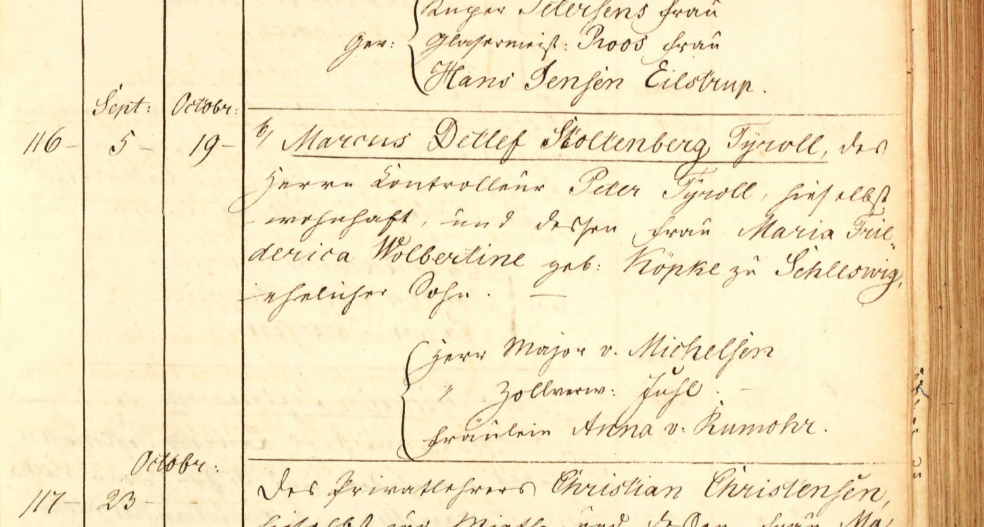 Küper Petersens Frau
Gev: Glasermeist: Roos Frau
Hans Jensen Eilstrup.
Sept: Octobr:
116 5 19 b/ Marcus Detlef Stoltenberg Tyroll, des
Herrn Controlleur Peter Tyroll, hieselbst
wohnhaft, und dessen Frau Maria Frie-
derica Wolbertine geb: Köpke zu Schleswig,
ehelicher Sohn. —
Herr Major v. Michelsen
" Zollverw: Juhl.
Fräulein Anna v. Rumohr.
Octobr:
117 23 Des Privatlehrers Christian Christensen,
hieselbst zur Miethe, und dessen Frau Ma